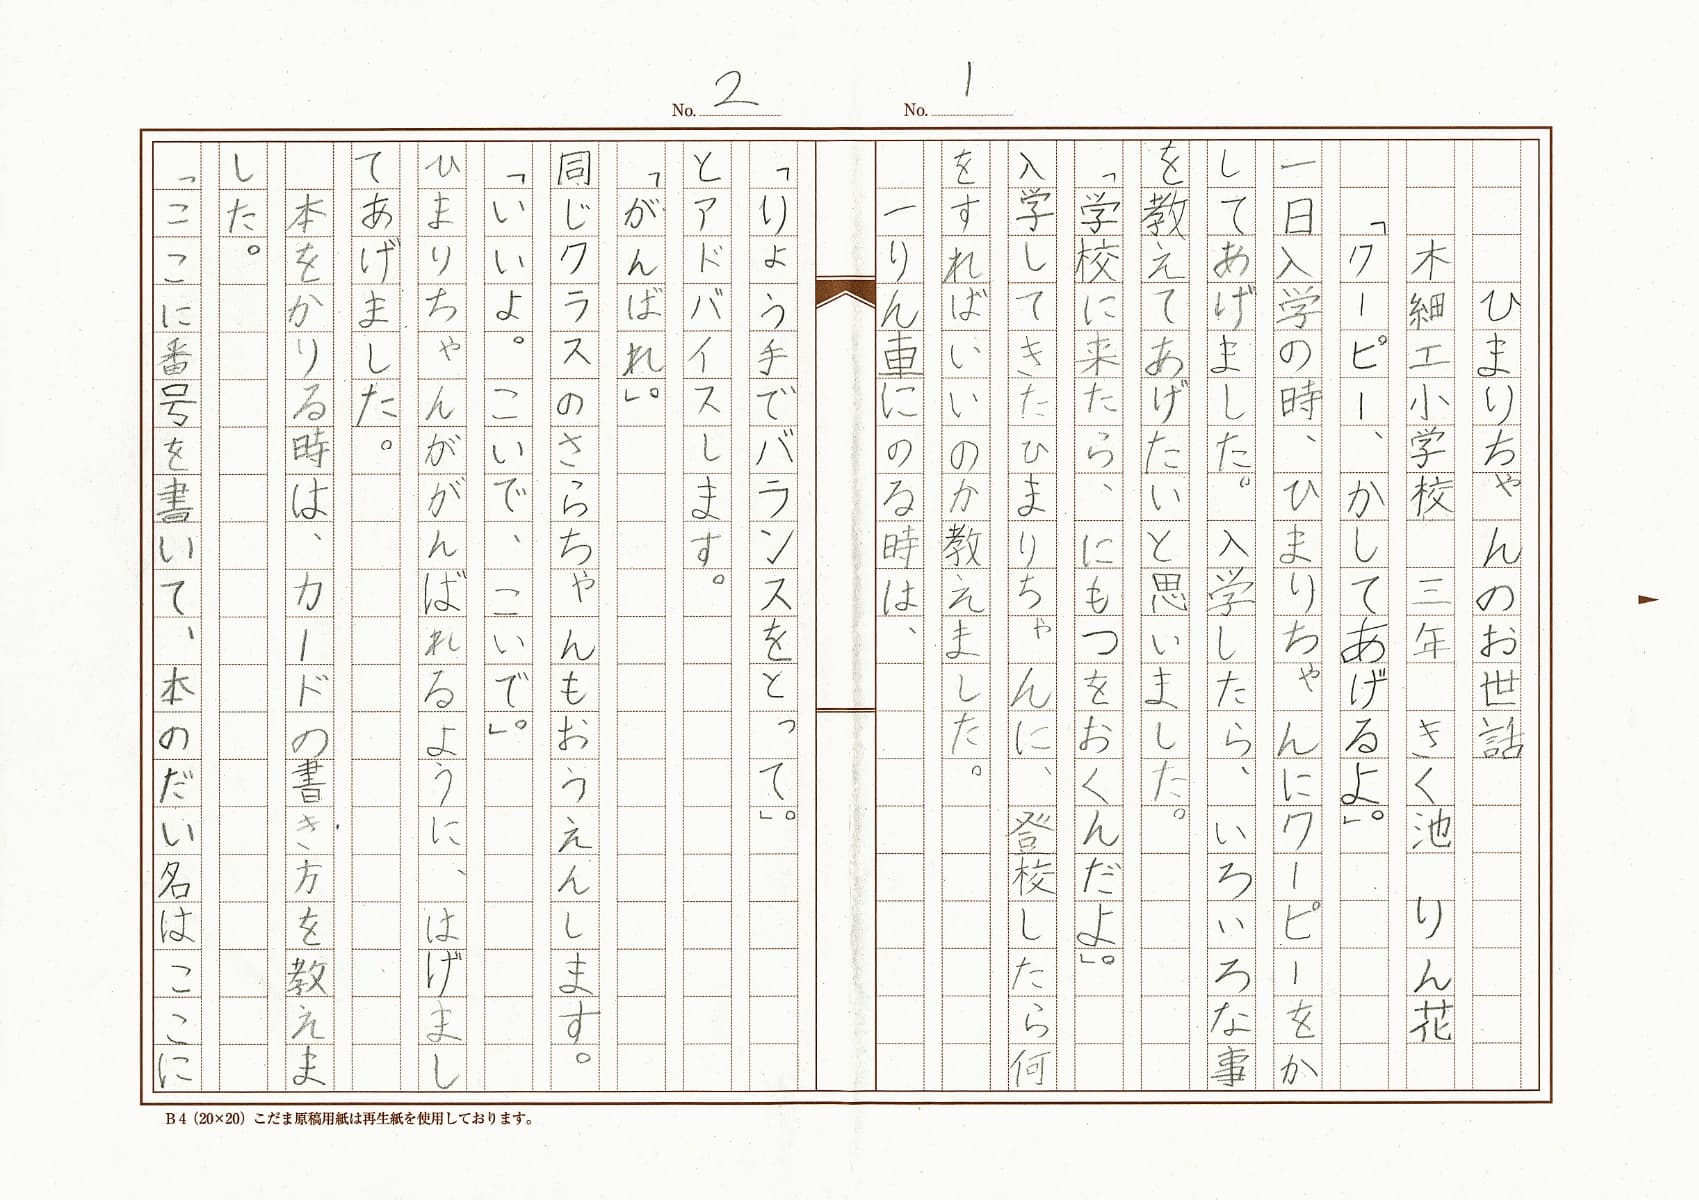 No. 1
ひまりちゃんのお世話
木細工小学校　三年　きく池　りん花
「クーピー、かしてあげるよ。」
一日入学の時、ひまりちゃんにクーピーをか
してあげました。入学したら、いろいろな事
を教えてあげたいと思いました。
「学校に来たら、にもつをおくんだよ。」
入学してきたひまりちゃんに、登校したら何
をすればいいのか教えました。
一りん車にのる時は、
No. 2
「りょう手でバランスをとって。」
とアドバイスします。
「がんばれ。」
同じクラスのさらちゃんもおうえんします。
「いいよ。こいで、こいで。」
ひまりちゃんががんばれるように、はげまし
てあげました。
本をかりる時は、カードの書き方を教えま
した。
「ここに番号を書いて、本のだい名はここに
B4（20×20）こだま原稿用紙は再生紙を使用しております。